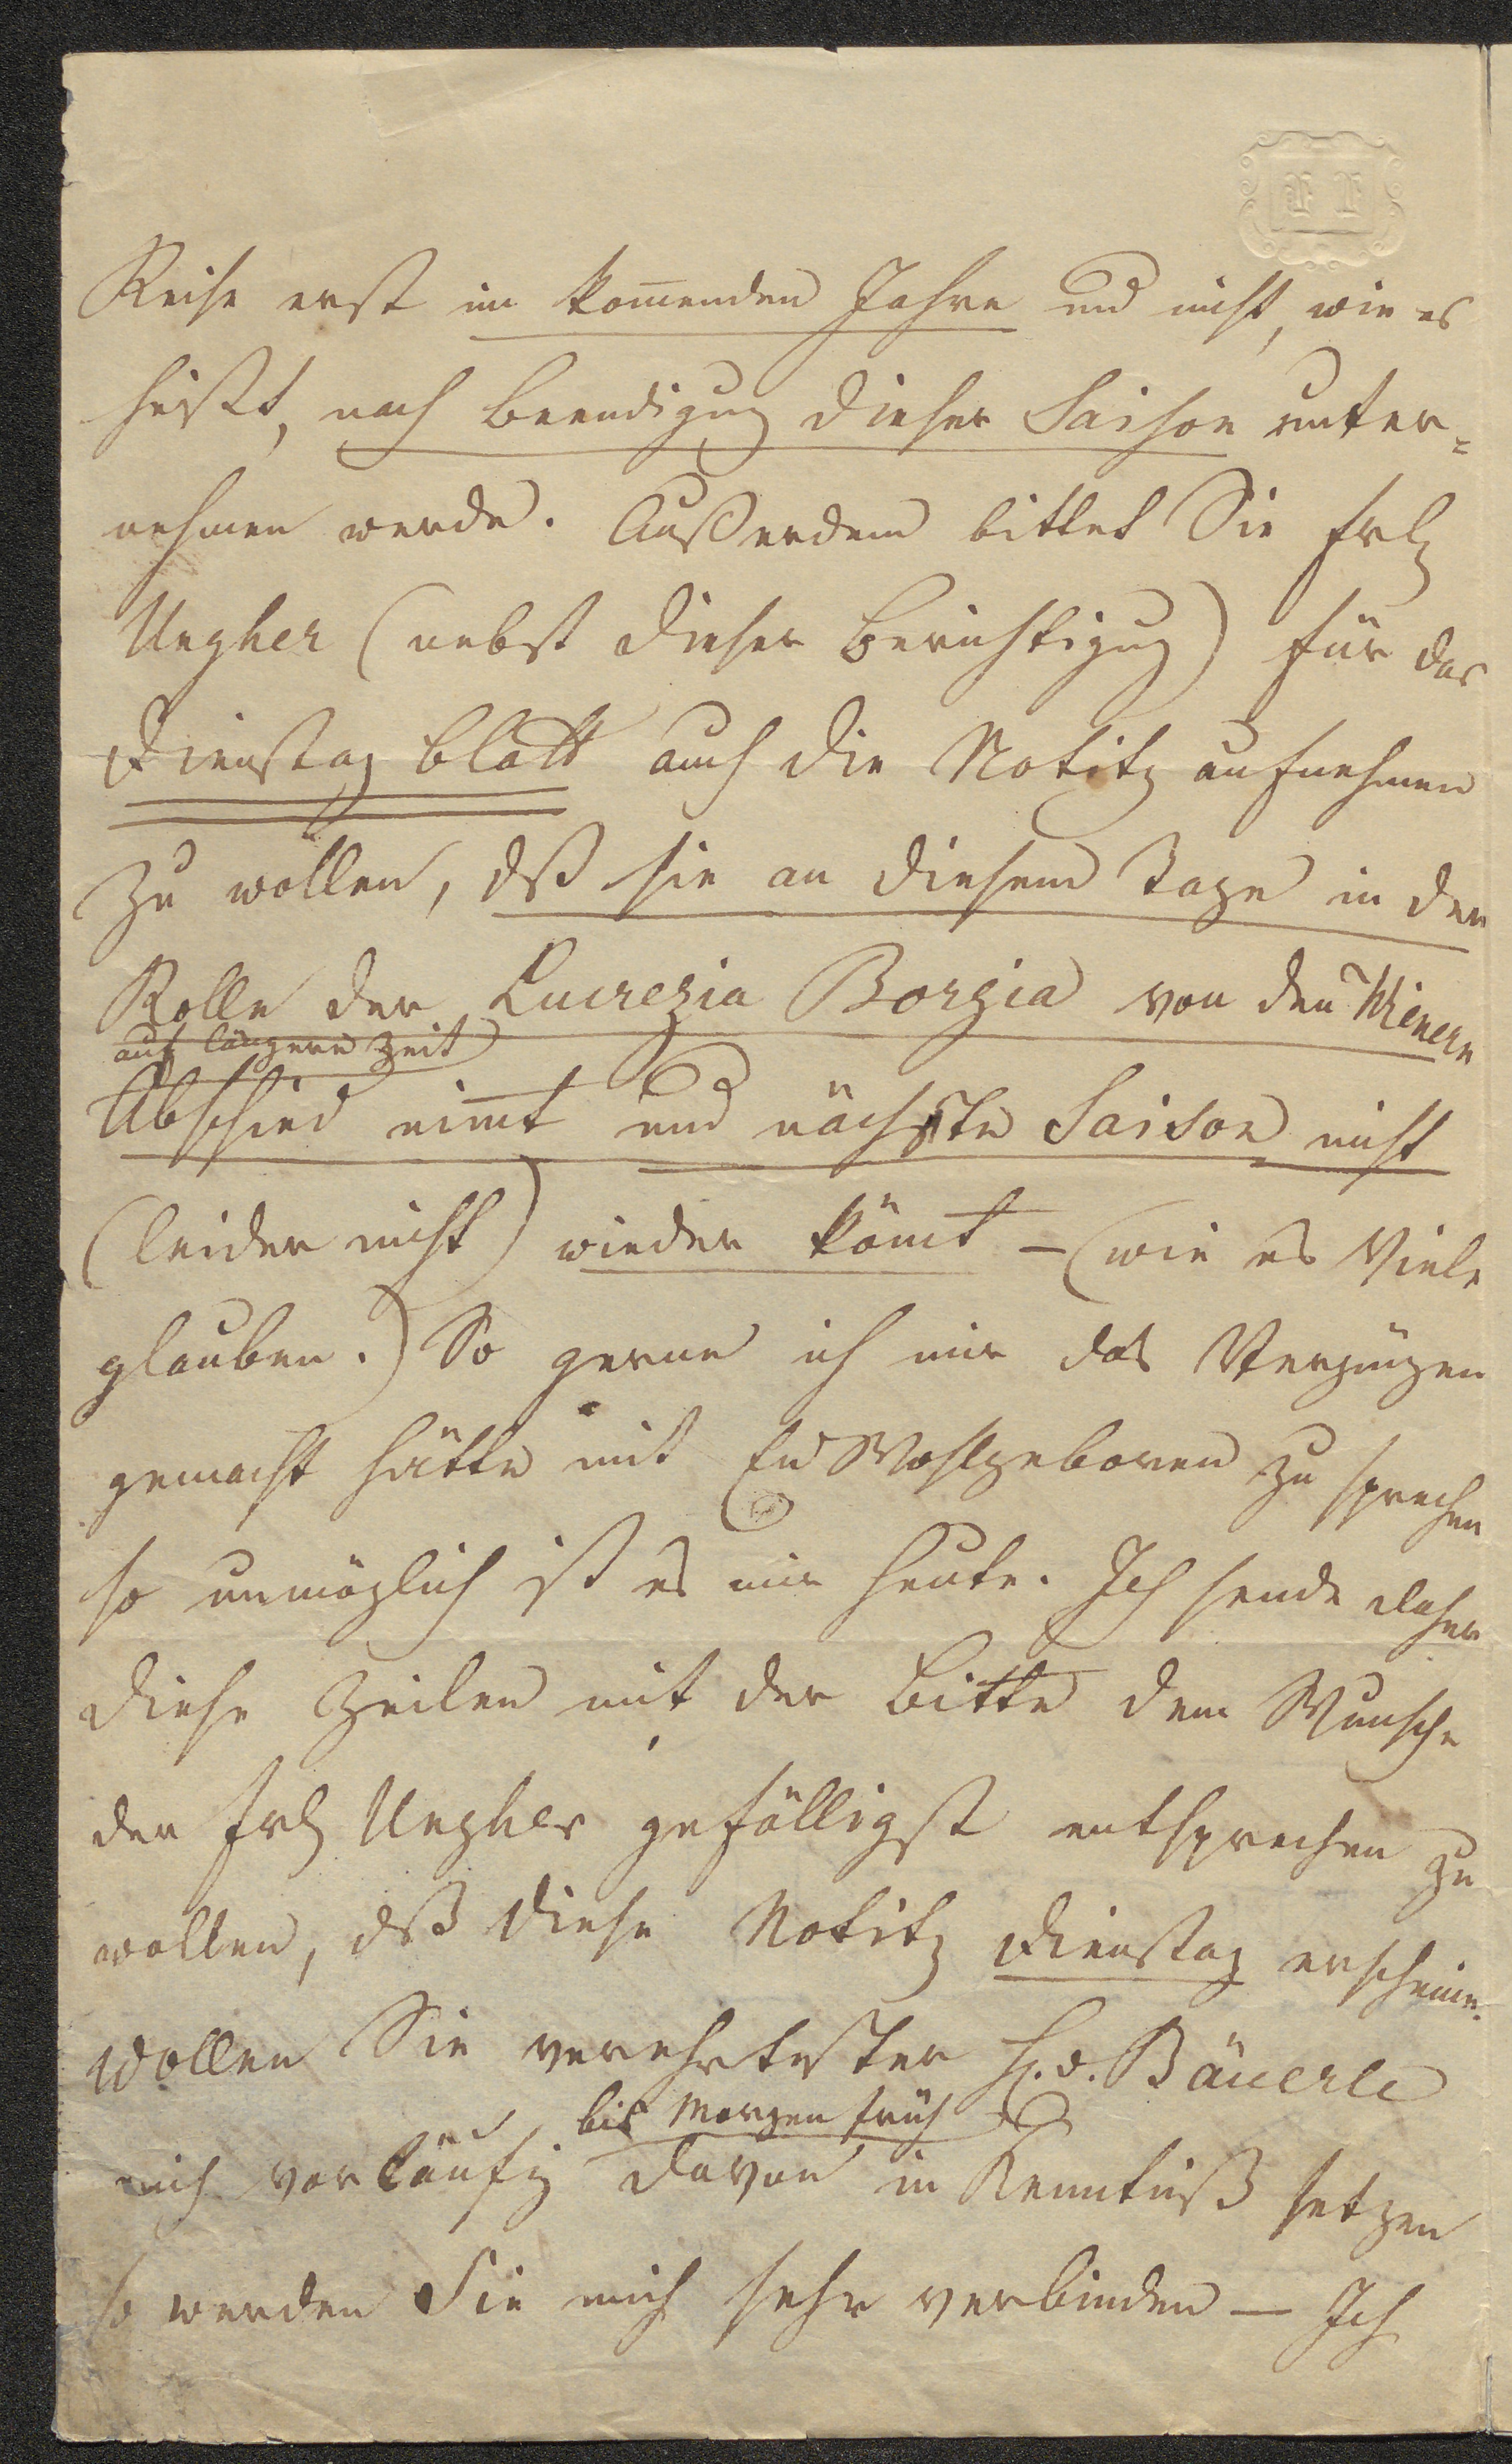 Reise erst im kom̅enden Jahre und nicht, wie es
heißt, nach Beendigung dieser Saison unter=
nehmen werde. Außerdem bittet Sie Frl
Ungher (nebst dieser Berichtigung) für das
Dienstag Blatt auch die Notitz aufnehmen
zu wollen, dß sie an diesem Tage in der
Rolle der Lucrezia Borgia von den Wienern
auf längere Zeit
Abschied nim̅t und nächste Saison nicht
(leider nicht) wieder köm̅t – (wie es Viele
glauben.) So gerne ich mir das Vergnügen
gemacht hätte mit Eu Wohlgeboren zu sprechen
so unmöglich ist es mir heute. Ich sende daher
diese Zeilen mit der Bitte dem Wunsche
der Frl Ungher gefälligst entsprechen zu
wollen, dß diese Notitz Dienstag erscheine.
Wollen Sie verehrtester H. v. Bäuerle
bis Morgen früh
mich vorläufig davon in Kenntniß setzen
so werden Sie mich sehr verbinden – Ich